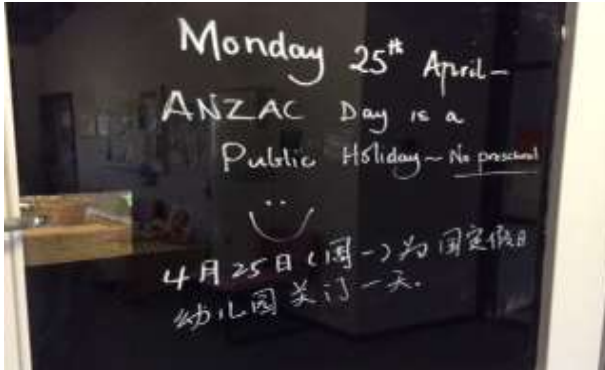 Monday 25th April-
ANZAC Day is a
Public Holiday~ No preschool
4月25日(周一)为国定假日
幼儿园关门一天.